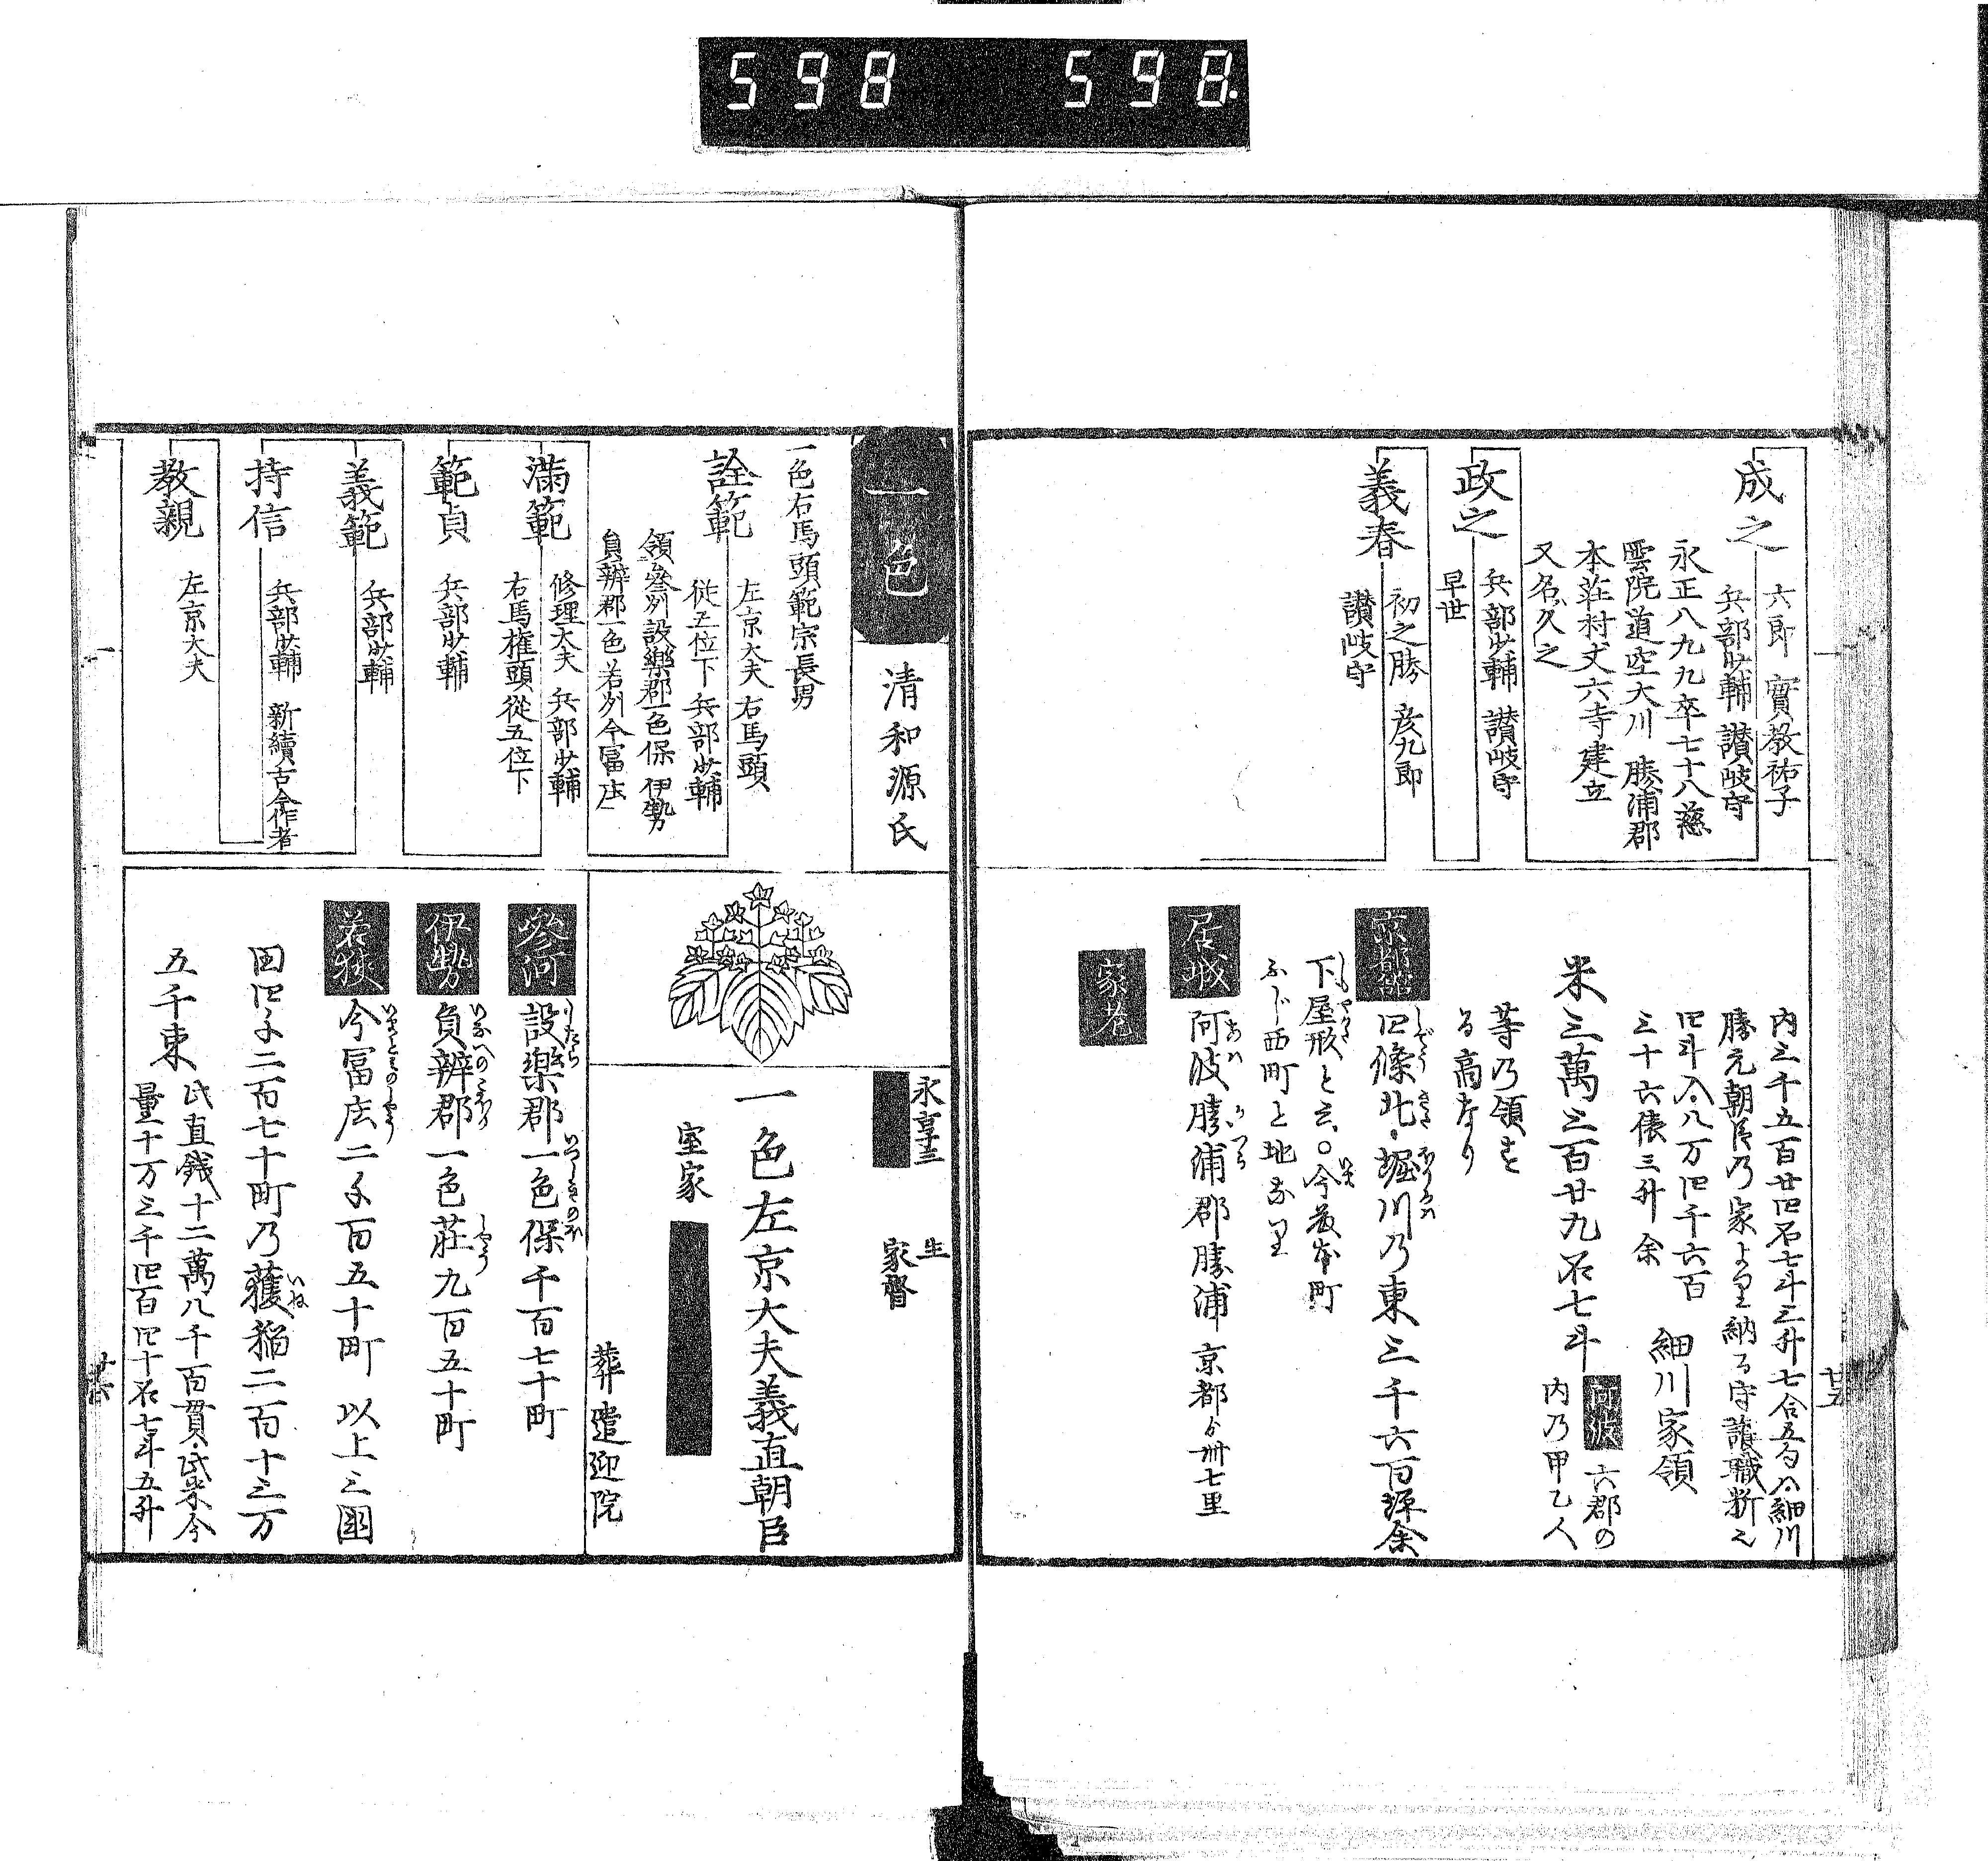 598 598
成之
六郎 實教祐子
兵部少輔 讃岐守
永正八九九卒七十八慈
雲院道空大川 勝浦郡
本莊村丈六寺建立
又名久之
政之
兵部少輔 讃岐守
早世
義春
初之勝 彦九郎
讃岐守
内三千五百廿四石七斗三升七合五勺八細川
勝元朝臣乃家より納る守護職料之
四斗入八万四千六百
三十六俵三升余 細川家領
米三萬三百廿九石七斗
阿波 六郡の
内乃甲乙人
等乃領す
る高なり
京都舘 四條北堀川乃東三千六百坪余
下屋形と云○今
西町と地なり
居城 阿波勝浦郡勝浦 京都ゟ卅七里
家老
廿五
一色 清和源氏
一色右馬頭範宗長男
詮範
左京大夫 右馬頭
従五位下 兵部少輔
領参州設樂郡一色保 伊勢
員辨郡一色 若州今冨庄
満範
修理大夫 兵部少輔
右馬權頭從五位下
範貞
兵部少輔
義範
兵部少輔
持信
兵部少輔 新續古今作者
教親
左京大夫
永享十三
生
家督
一色左京大夫義直朝臣
室家
葬遣迎院
参河 設樂郡一色保千百七十町
伊勢 員辨郡一色莊九百五十町
若狭 今冨庄二千百五十町 以上三國
田四千二百七十町乃穫稲二百十三万
五千束
代直銭十二萬八千百貫代米今
量十万三千四百四十石七斗五升
廿六